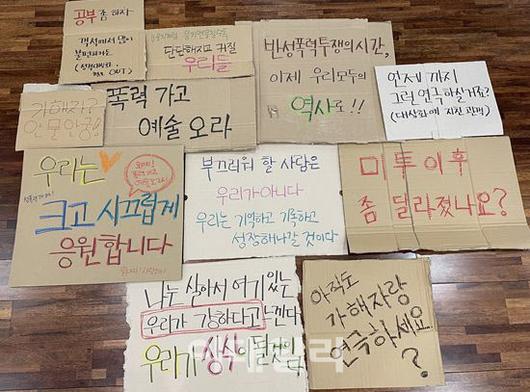 공부 좀 하자
객석에서 많이
불편하거든
OUT)
단단해지고 커질
우리들
반성폭력투쟁의 시간,
이제 우리모두의
역사로!!
언제까지
그런 연극 하실거죠?
가해자?
안물안궁
폭력 가고
예술 오라
우리는
크고 시끄럽게
응원합니다
부끄러워 할 사람은
우리가 아니다
우리는 기억하고 기록하고
성장해나갈 것이다
미투 이후
좀 달라졌나요?
나는 살아서 여기 있는
우리가 강하다고 느낀다
우리가 상식이 될 것이다
아직도
가해자랑
연극하세요
?
이데일리